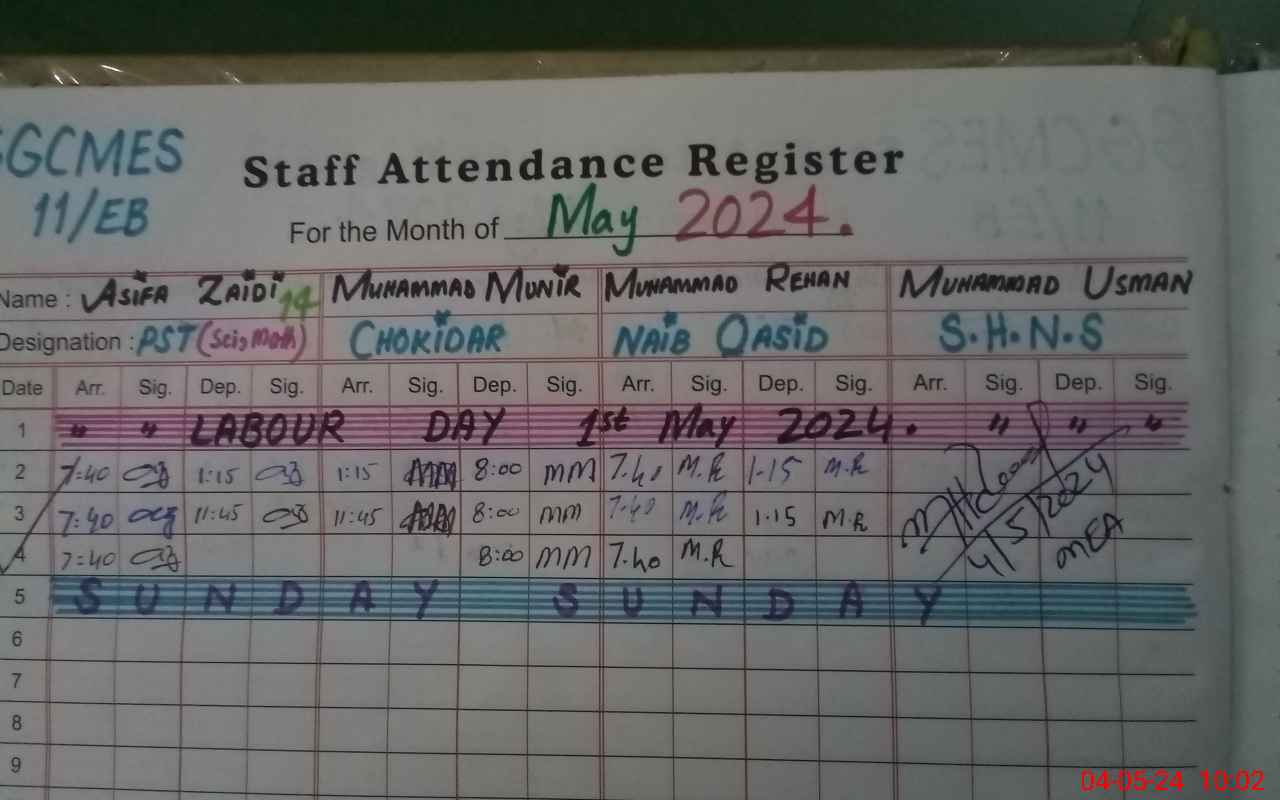 GGCMES
11/EB
Staff Attendance Register
For the Month of May 2024.
Name : ASIFA ZAIDI 14 MUHAMMAD MUNIR MUHAMMAD REHAN MUHAMMAD USMAN
Designation : PST (Sci, Math) CHOKIDAR NAIB QASID S.H.N.S
Date Arr. Sig. Dep. Sig. Arr. Sig. Dep. Sig. Arr. Sig. Dep. Sig. Arr. Sig. Dep. Sig.
1 " " LABOUR DAY 1st May 2024. " " "
2 7:40 1:15 1:15 8:00 MM 7.40 M.R 1-15 M.R
3 7:40 11:45 11:45 8:00 MM 7:40 M.R 1.15 M.R
4 7:40 8:00 MM 7.40 M.R 4/5/2024 MEA
5 SUNDAY SUNDAY
6
7
8
9
04-05-24 10:02